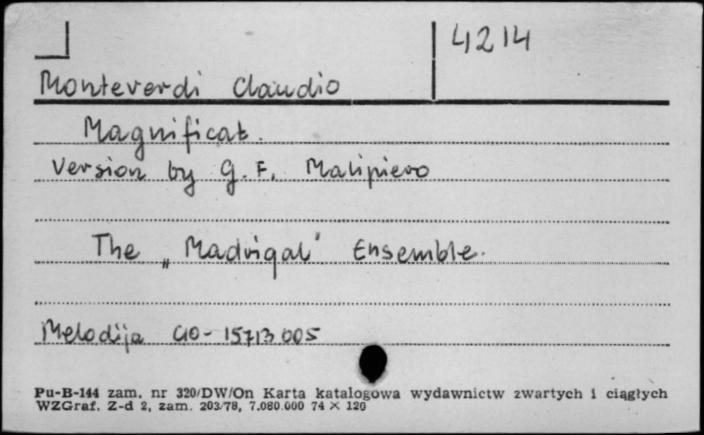 4214
Monteverdi Claudio
Magnificat.
Version by G. F. Malipiero
The „Madrigal" Ensemble.
Melodija C10-15713005
Pu-B-144 zam. nr 320/DW/On Karta katalogowa wydawnictw zwartych i ciągłych
WZGraf. Z-d 2, zam. 203/78, 7.080.000 74 × 120